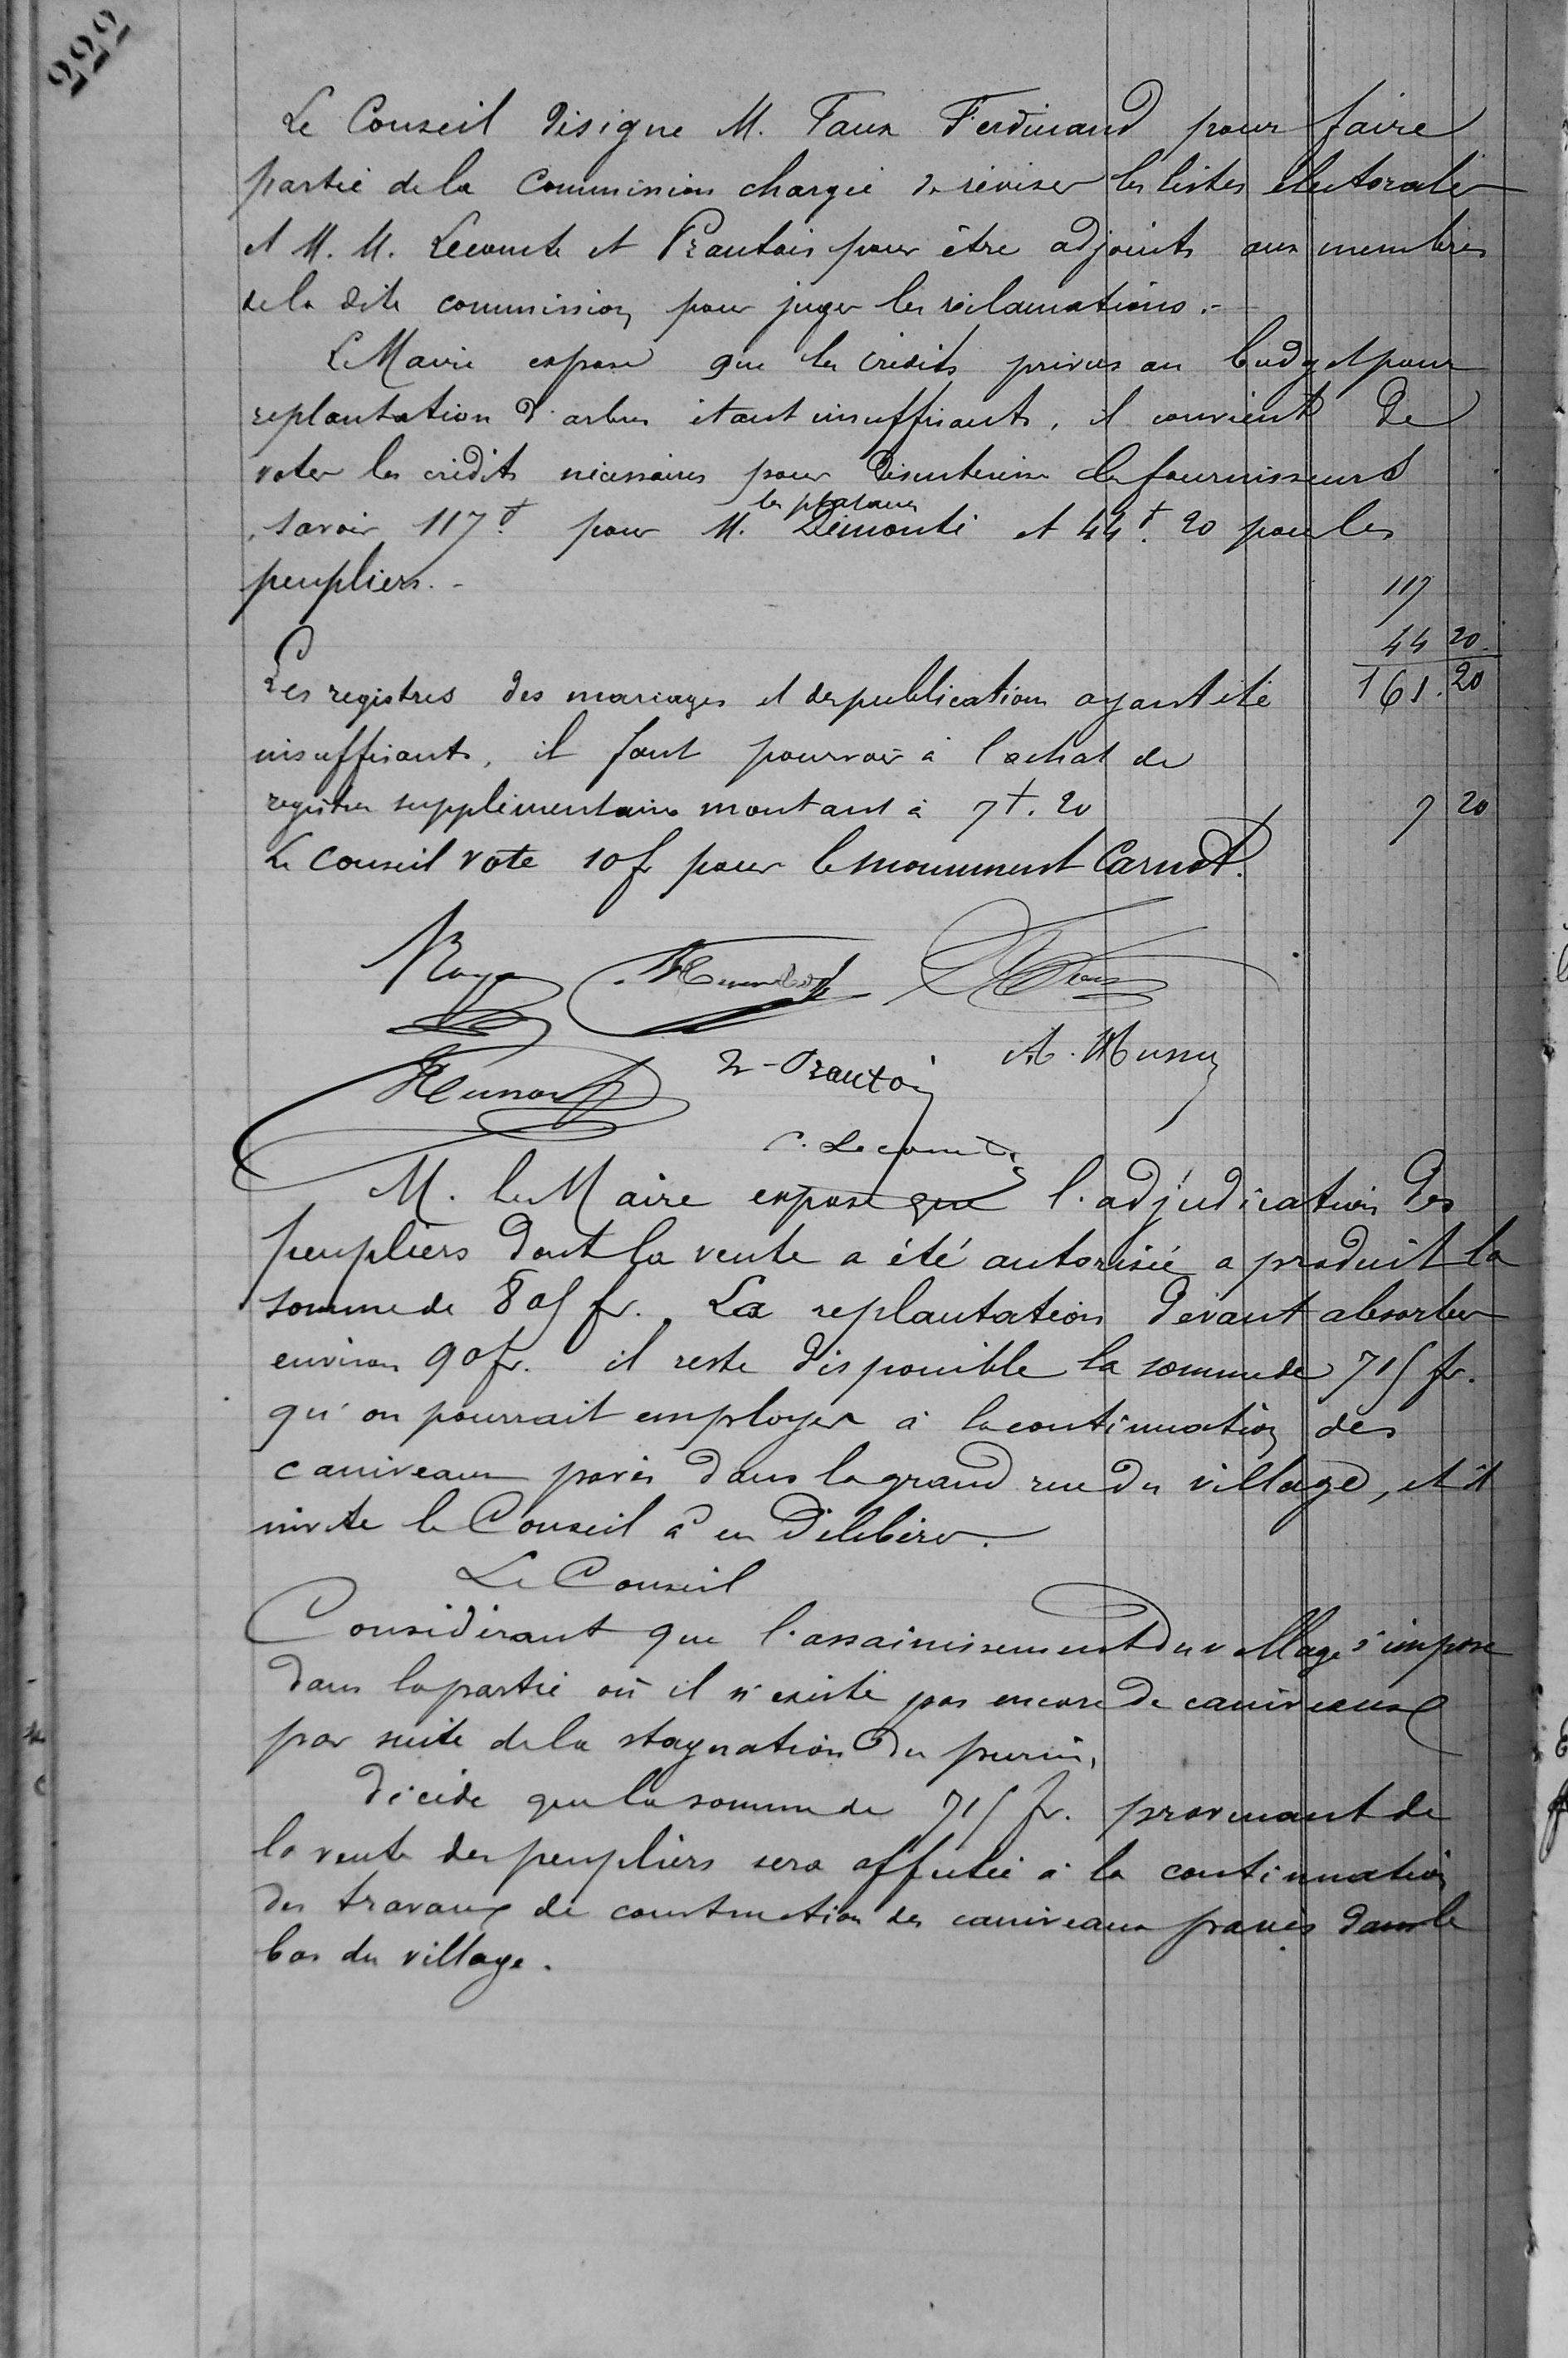 222
Le Conseil désigne M. Faux Ferdinand pour faire
partie de la Commission chargée de réviser les listes électorales
et M. M. Lecomte et Prautois pour être adjoints aux membres
de la dite commission pour juger les réclamations.-
Le Maire expose que les crédits prévus au budget pour
replantation d'arbres étant insuffisants, il convient de
voter les crédits nécessaires pour désintéresser les fournisseurs
savoir 117f pour M. Démonté et 44f. 20 pour les
les platanes
peupliers.-
117
44 20
161. 20
Les registres des mariages et des publications ayant été
insuffisants, il faut pourvoir à l'achat de
registres supplémentaires montant à 7f. 20
7 20
Le Conseil vote 10 fr pour le monument Carnot.
N. Prautois
A. Munny
C. Lecomte
M. le Maire expose que l'adjudication des
peupliers dont la vente a été autorisée a produit la
somme de 805 fr. La replantation devant absorber
environ 90 fr. il reste disponible la somme de 715 fr.
qu'on pourrait employer à la continuation des
caniveaux pavés dans la grand rue du village, et il
invite le Conseil à en délibérer.
Le Conseil
Considérant que l'assainissement du village s'impose
dans la partie où il n'existe pas encore de caniveaux
par suite de la stagnation du purin,
décide que la somme de 715 fr. provenant de
la vente des peupliers sera affectée à la continuation
des travaux de construction des caniveaux pavés dans le
bas du village.